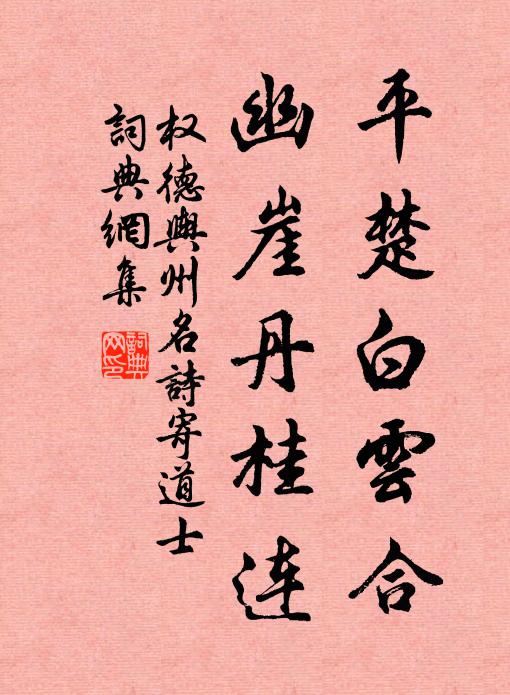 平楚白雲合
幽崖丹桂连
权德輿州名詩寄道士
詞典網集
詞典網印